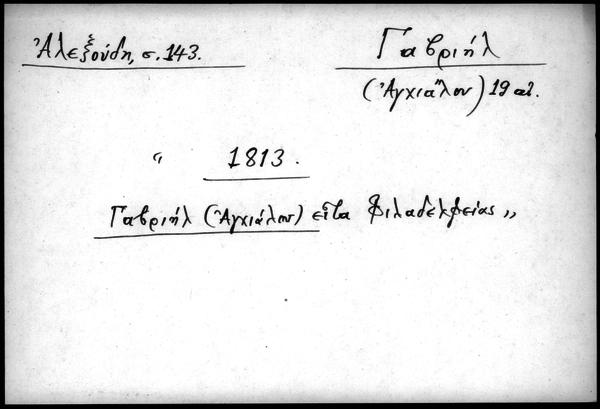 Ἀλεξούδη, σ. 143.
Γαβριήλ
(Ἀγχιάλου) 19 αἰ.
“ 1813.
Γαβριήλ (Ἀγχιάλου) εἶτα Φιλαδελφείας ”